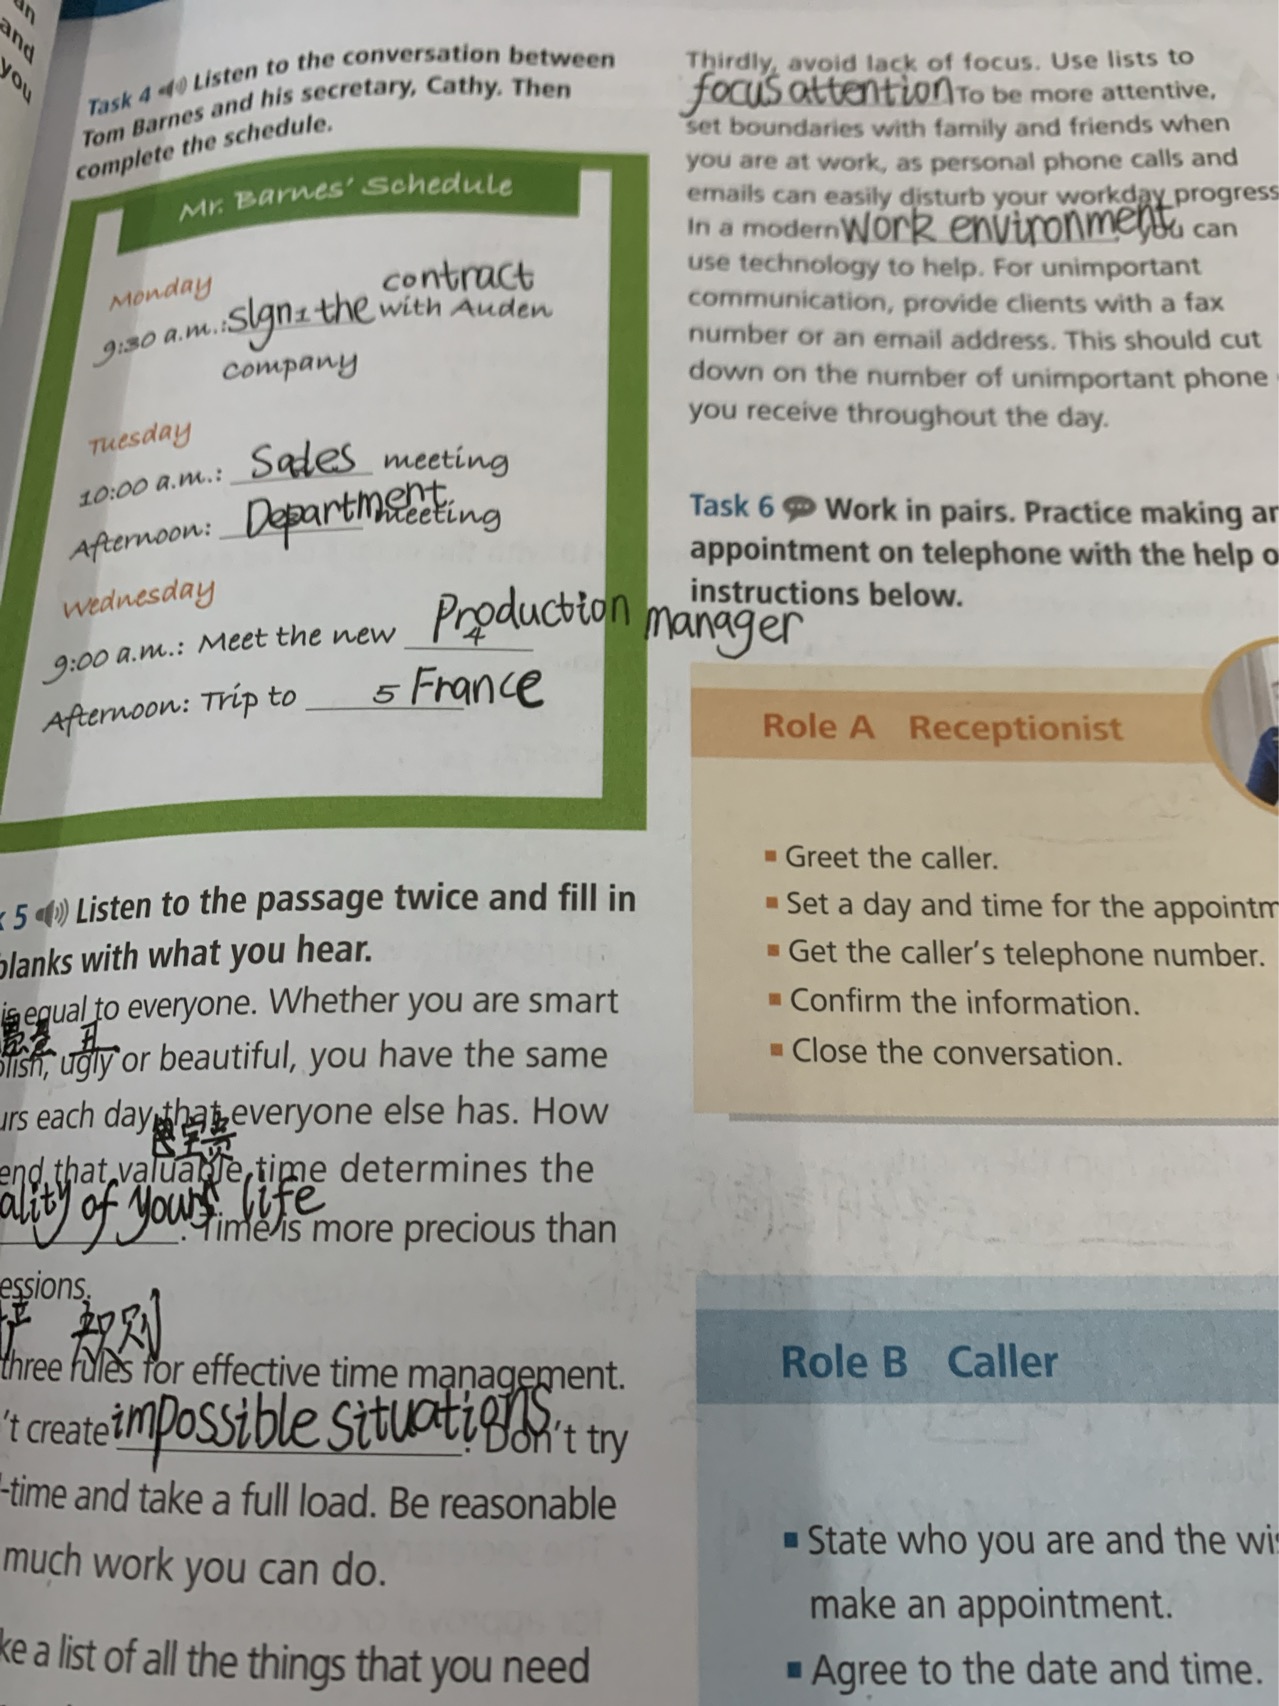 an
and
you
Task 4 Listen to the conversation between
Tom Barnes and his secretary, Cathy. Then
complete the schedule.
Mr. Barnes' Schedule
Monday
contract
9:30 a.m.: sign 1 the with Auden
company
Tuesday
10:00 a.m.: Sales meeting
Afternoon: Department meeting
Wednesday
9:00 a.m.: Meet the new 4 Production manager
Afternoon: Trip to 5 France
5 Listen to the passage twice and fill in
blanks with what you hear.
is equal to everyone. Whether you are smart
丑
olish, ugly or beautiful, you have the same
urs each day that everyone else has. How
宝贵
end that valuable time determines the
ality of yours life
. Time is more precious than
essions.
规则
three rules for effective time management.
't create impossible situations. Don't try
-time and take a full load. Be reasonable
much work you can do.
ke a list of all the things that you need
Thirdly, avoid lack of focus. Use lists to
focus attention To be more attentive,
set boundaries with family and friends when
you are at work, as personal phone calls and
emails can easily disturb your workday progress
In a modern work environment you can
use technology to help. For unimportant
communication, provide clients with a fax
number or an email address. This should cut
down on the number of unimportant phone
you receive throughout the day.
Task 6 Work in pairs. Practice making an
appointment on telephone with the help o
instructions below.
Role A Receptionist
Greet the caller.
Set a day and time for the appointm
Get the caller's telephone number.
Confirm the information.
Close the conversation.
Role B Caller
State who you are and the wi
make an appointment.
Agree to the date and time.